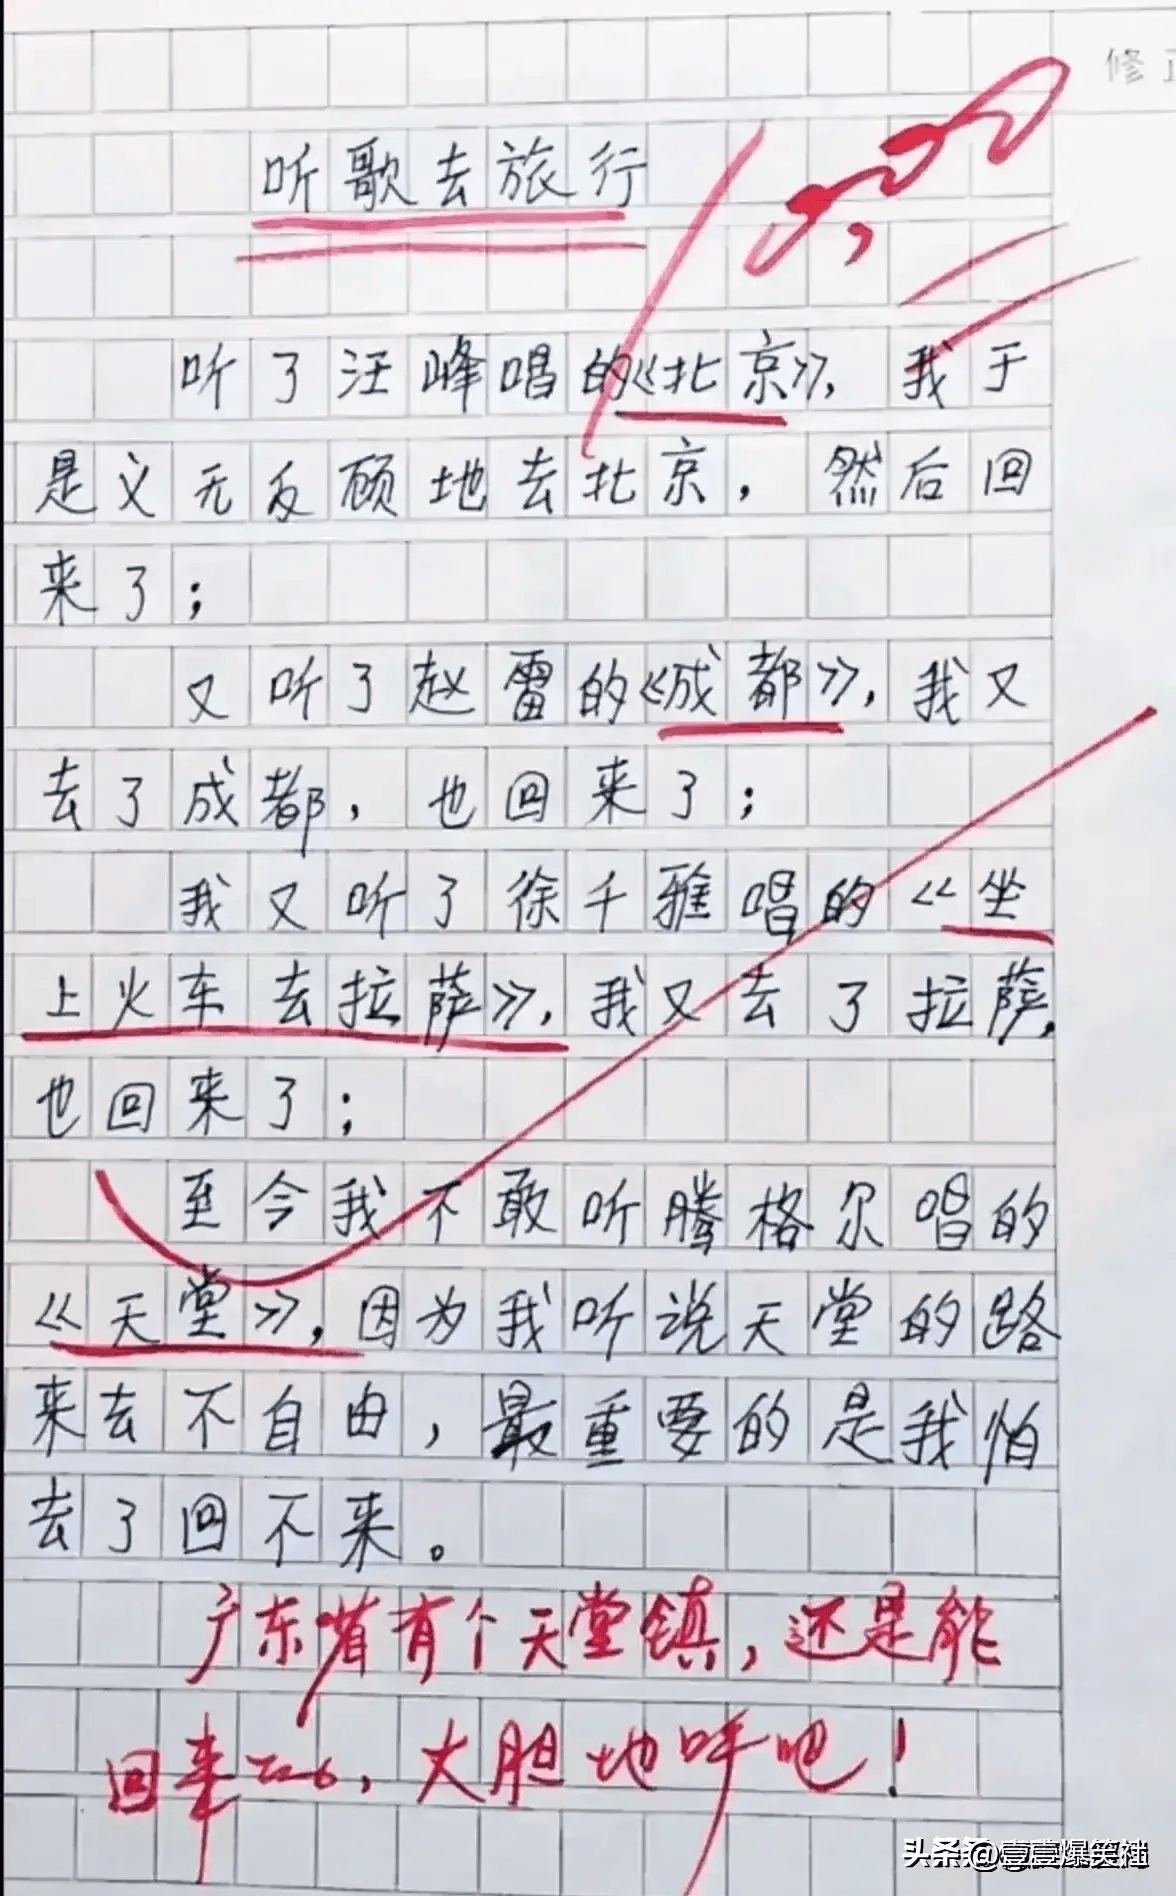 修正
听歌去旅行
听了汪峰唱的《北京》，我于
是义无反顾地去北京，然后回
来了；
又听了赵雷的《成都》，我又
去了成都，也回来了；
我又听了徐千雅唱的《坐
上火车去拉萨》，我又去了拉萨，
也回来了；
至今我不敢听腾格尔唱的
《天堂》，因为我听说天堂的路
来去不自由，最重要的是我怕
去了回不来。
广东省有个天堂镇，还是能
回来，大胆地听吧！
头条@壹壹爆笑社